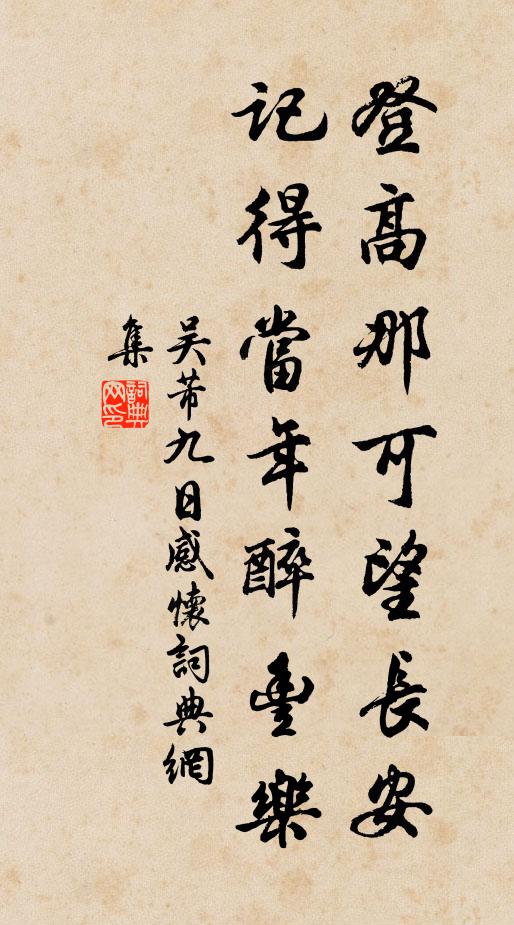 登高那可望長安
記得當年醉豐樂
吳芾九日感懷詞典網
集
詞典網印